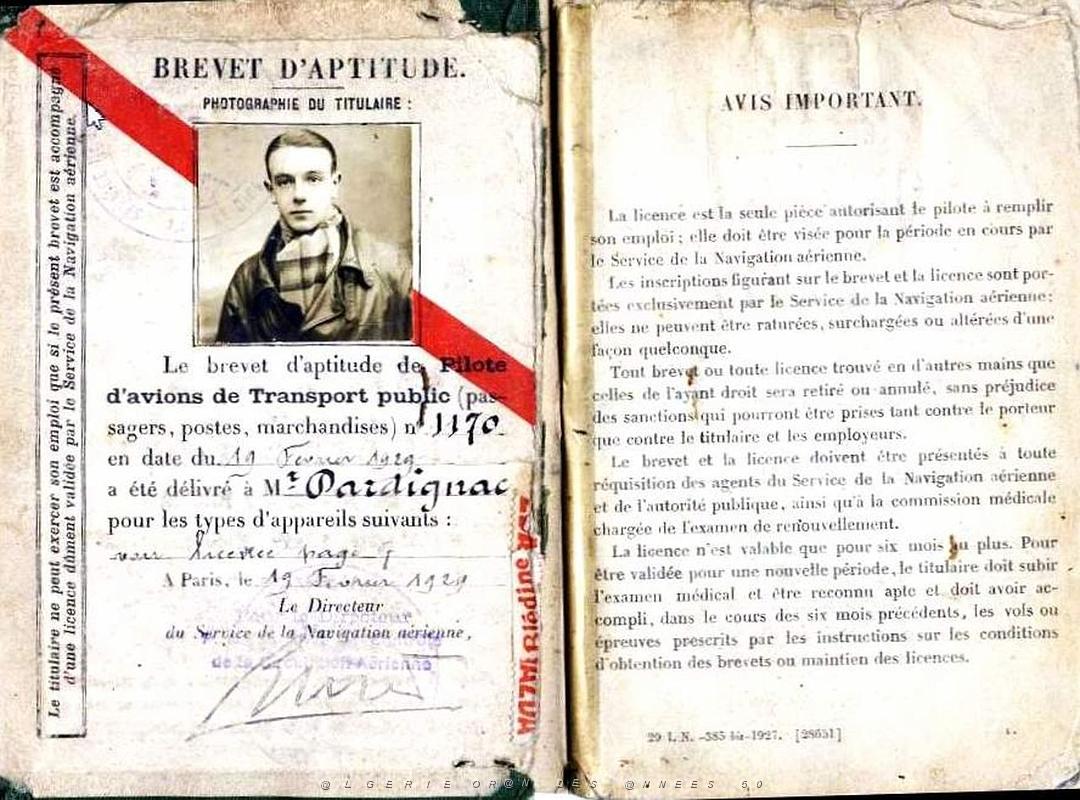 BREVET D'APTITUDE.
PHOTOGRAPHIE DU TITULAIRE :
Le titulaire ne peut exercer son emploi que si le présent brevet est accompagné
d'une licence dûment validée par le Service de la Navigation aérienne.
Le brevet d'aptitude de Pilote
d'avions de Transport public (pas-
sagers, postes, marchandises) n° 1170
en date du 19 Février 1929
a été délivré à Mr Pardignac
pour les types d'appareils suivants :
voir licence page
A Paris, le 19 Février 1929
Le Directeur
du Service de la Navigation aérienne,
de la Circulation Aérienne
Blédine
AVIS IMPORTANT.
La licence est la seule pièce autorisant le pilote à remplir
son emploi ; elle doit être visée pour la période en cours par
le Service de la Navigation aérienne.
Les inscriptions figurant sur le brevet et la licence sont por-
tées exclusivement par le Service de la Navigation aérienne;
elles ne peuvent être raturées, surchargées ou altérées d'une
façon quelconque.
Tout brevet ou toute licence trouvé en d'autres mains que
celles de l'ayant droit sera retiré ou annulé, sans préjudice
des sanctions qui pourront être prises tant contre le porteur
que contre le titulaire et les employeurs.
Le brevet et la licence doivent être présentés à toute
réquisition des agents du Service de la Navigation aérienne
et de l'autorité publique, ainsi qu'à la commission médicale
chargée de l'examen de renouvellement.
La licence n'est valable que pour six mois au plus. Pour
être validée pour une nouvelle période, le titulaire doit subir
l'examen médical et être reconnu apte et doit avoir ac-
compli, dans le cours des six mois précédents, les vols ou
épreuves prescrits par les instructions sur les conditions
d'obtention des brevets ou maintien des licences.
29 I. N. -385 bis-1927. [28651]
@LGERIE OR@N DES @NNEES 50